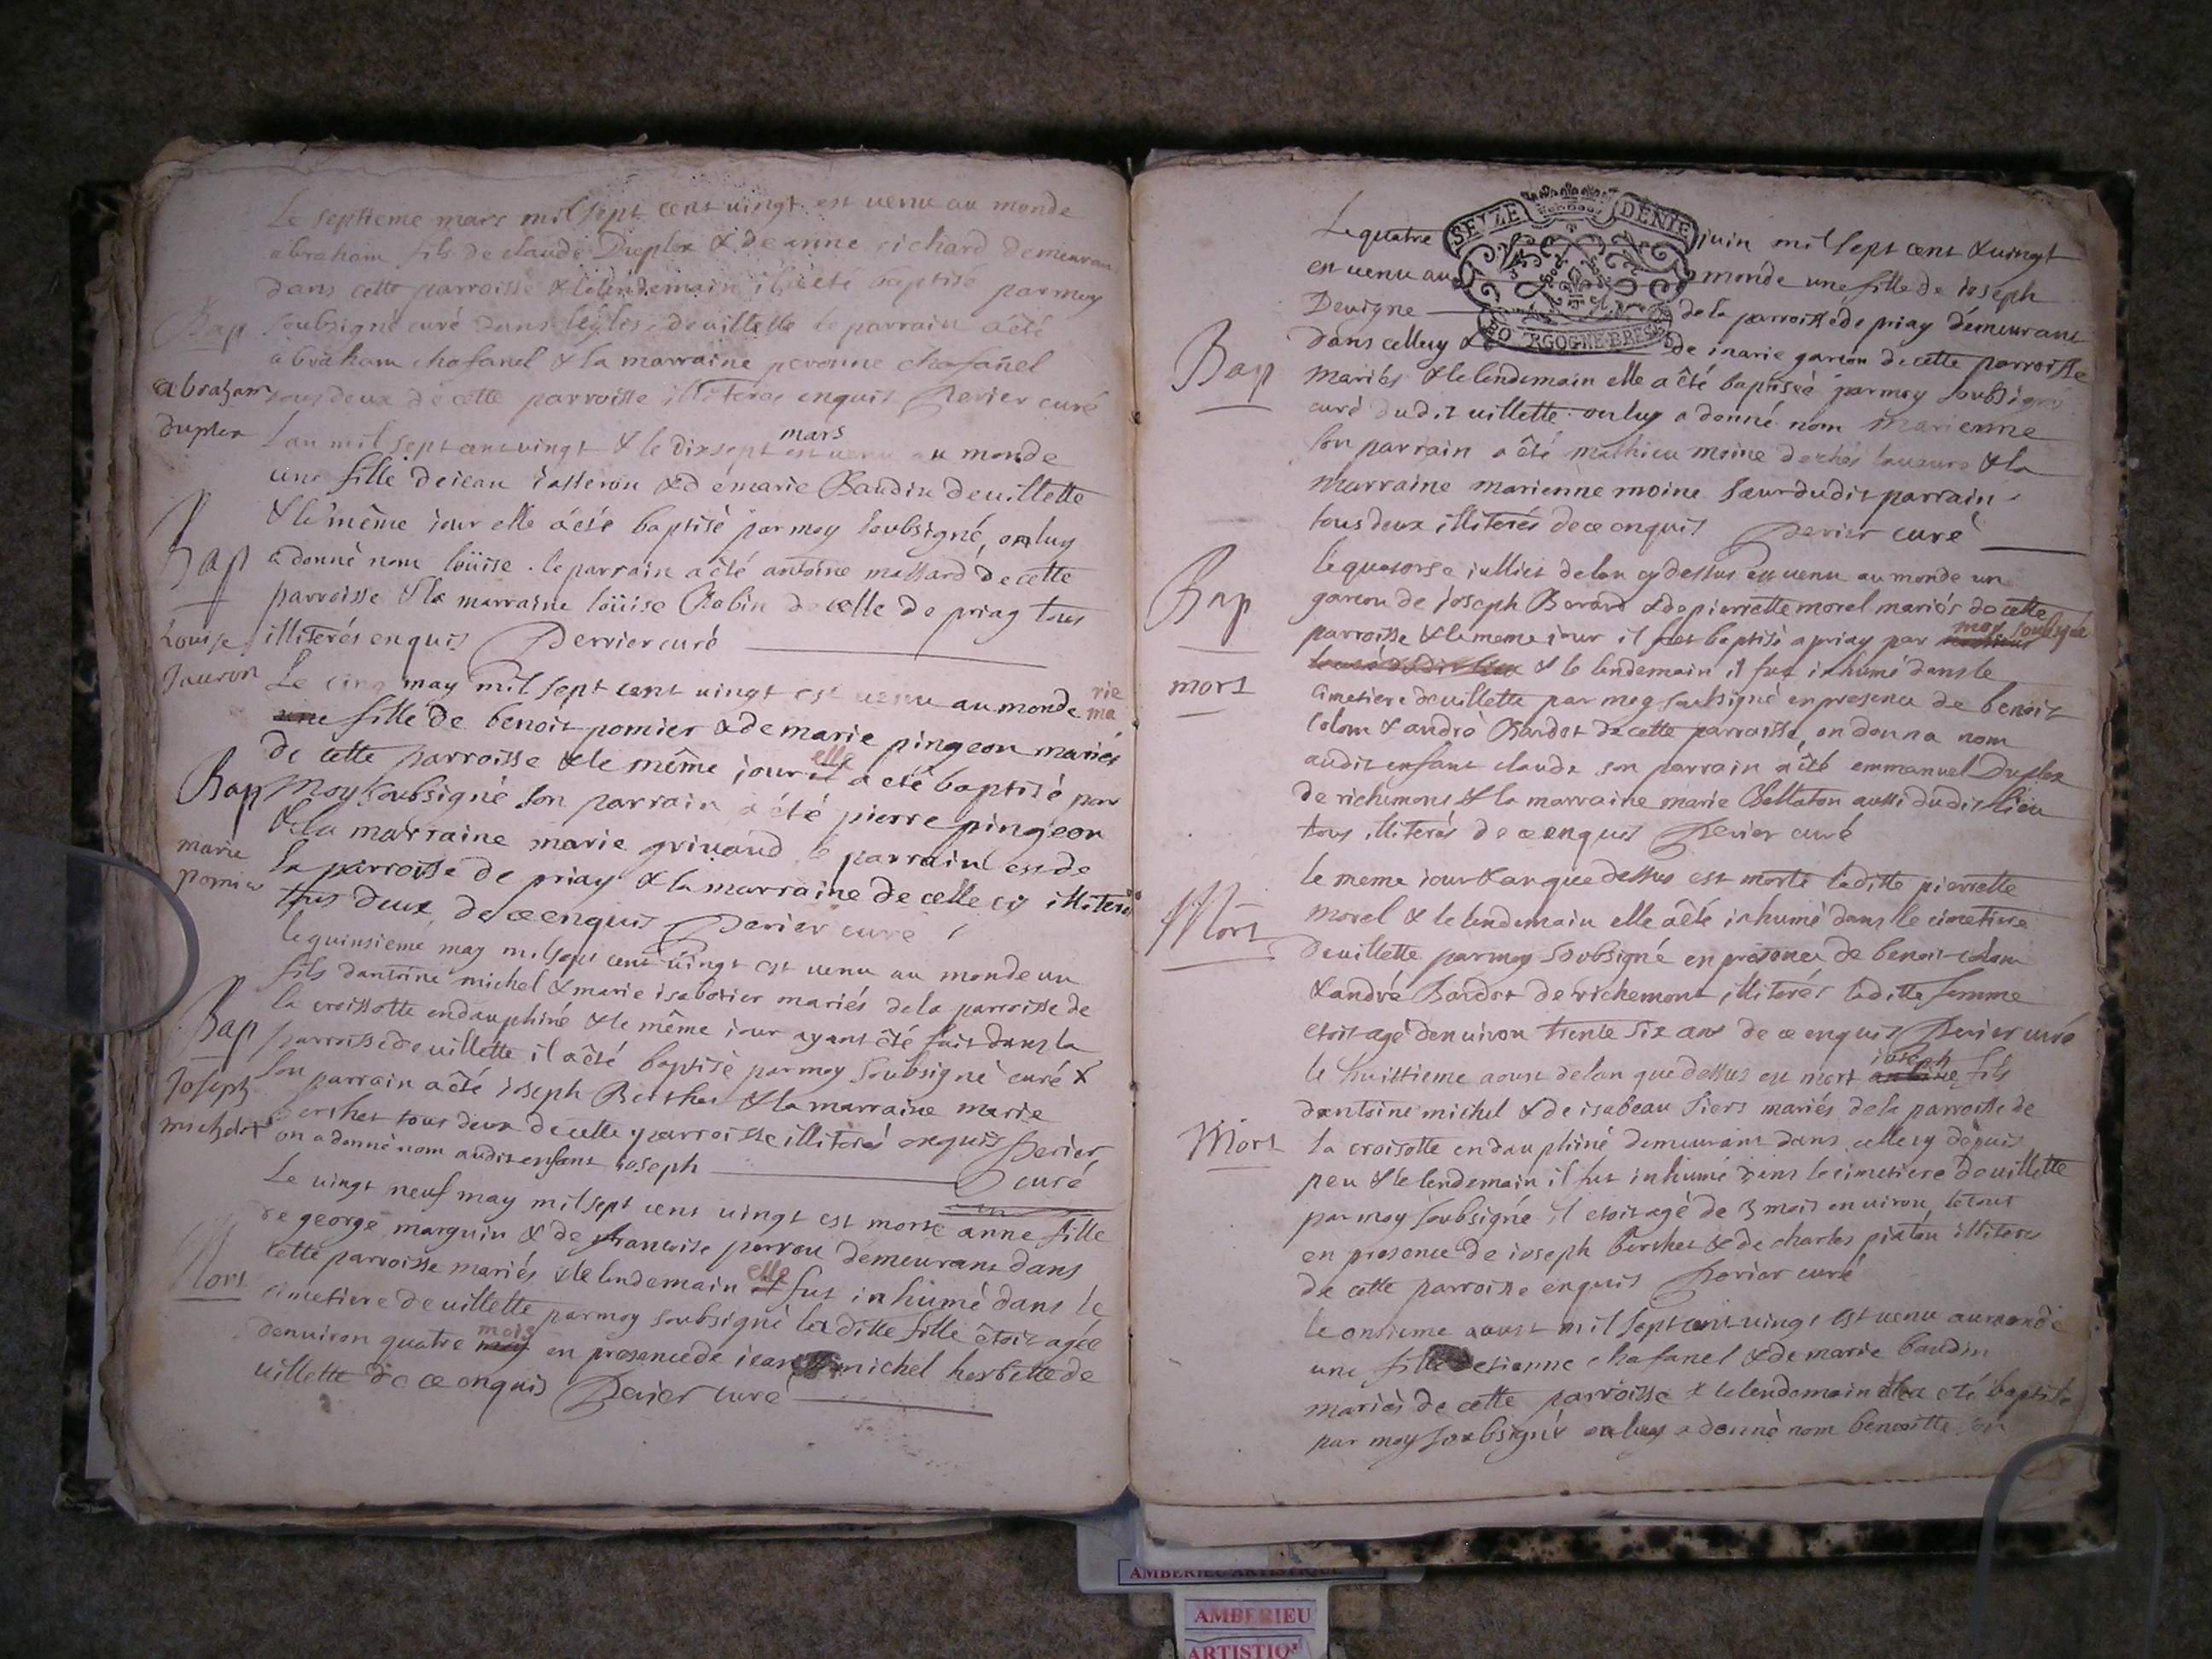 Le septieme mars mil sept cent vingt est venu au monde
abraham fils de claude Duplex & de anne richard demeuran
dans cette parroisse & le lendemain il a été baptisé par moy
Bap
soubsigné curé dans leglise de villette le parrain a été
abraham chafanel & la marraine peronne chafanel
abraham
duplex
tous deux de cette parroisse illiterés enquis Perier curé
Lan mil sept cent vingt & le dix sept mars est venu au monde
une fille de iean iasseron & de marie Baudin de villette
& le même iour elle a été baptisé par moy soubsigné, on luy
Bap
a donné nom loüise . le parrain a été antoine massard de cette
parroisse & la marraine loüise Robin de celle de priay tous
Louise
illiterés enquis Perrier curé
Jauron
Le cinq may mil sept cent vingt est venu au monde ma rie
une fille de benoit pomier & de marie pingeon mariés
de cette parroisse & le même iour elle a été baptisé par
Bap
moy soubsigné son parrain a été pierre pingeon
& la marraine marie grivaud le parrain est de
marie
pomier
la parroisse de priay & la marraine de celle cy illiterés
tous deux de ce enquis Perier curé
le quinsieme may mil sept cent vingt est venu au monde un
fils dantoine michel & marie isabotier mariés de la parroisse de
la croissotte en dauphiné & le même iour ayant été fait dans la
Bap
parroisse de villette il a été baptisé par moy soubsigné curé &
Joseph
son parrain a été ioseph Berthet & la marraine marie
michel
berthet tous deux de cette parroisse illiterés enquis Perier
on a donné nom audit enfant ioseph curé
Le vingt neuf may mil sept cent vingt est morte anne fille
de george marguin & de francoise perron demeurant dans
cette parroisse mariés & le lendemain elle fut inhumé dans le
Mort
cimetiere de villette par moy soubsigné laditte fille étoit agée
denviron quatre mois en presence de iean michel herbette de
villette de ce enquis Perier curé
SEIZE DENIE
BO RGOGNE BRESSE
Le quatre juin mil sept cent & vingt
est venu au monde une fille de ioseph
Devigne de la parroisse de priay demeurant
dans celle cy & de marie garcon de cette parroisse
Bap
mariés & le lendemain elle a été baptisée par moy soubsigné
curé dudit villette. on luy a donné nom marienne
son parrain a été mathieu moine & la
marraine marienne moine sœur dudit parrain
tous deux illiterés de ce enquis Perier curé
Bap
le quatorse iulliet de lan cy dessus est venu au monde un
garcon de ioseph Berard & de pierrette morel mariés de cette
parroisse & le meme iour il fut baptisé a priay par moy soubsigné
mort
& le lendemain il fut inhumé dans le
cimetiere de villette par moy soubsigné en presence de benoit
colom & andré Bardot de cette parroisse, on donna nom
audit enfant claude son parrain a été emmanuel Duplex
de richemont & la marraine marie Chellaton aussi dudit lieu
tous illiterés de ce enquis Perier curé
le meme iour & an que dessus est morte laditte pierrette
Mort
morel & le lendemain elle a été inhumé dans le cimetiere
de villette par moy soubsigné en presence de benoit colom
& andré Bardot de richemont illiterés laditte femme
etoit agé denviron trente six ans de ce enquis Perier curé
le huittieme aoust de lan que dessus est mort ioseph fils
dantoine michel & de isabeau tiers mariés de la parroisse de
Mort
la croisotte en dauphiné demeurant dans celle cy depuis
peu & le lendemain il fut inhumé dans le cimetiere de villette
par moy soubsigné il etoit agé de 3 mois environ, le tout
en presence de ioseph berthet & de charles piaton illiterés
de cette parroisse enquis Perier curé
le onsieme aoust mil sept cent vingt est venu au monde
une fille etienne chafanel & de marie baudin
mariés de cette parroisse & le lendemain elle a eté baptisé
par moy soubsigné on luy a donné nom benoitte son
AMBERIEU ARTISTIQUE
AMBERIEU
ARTISTIQ